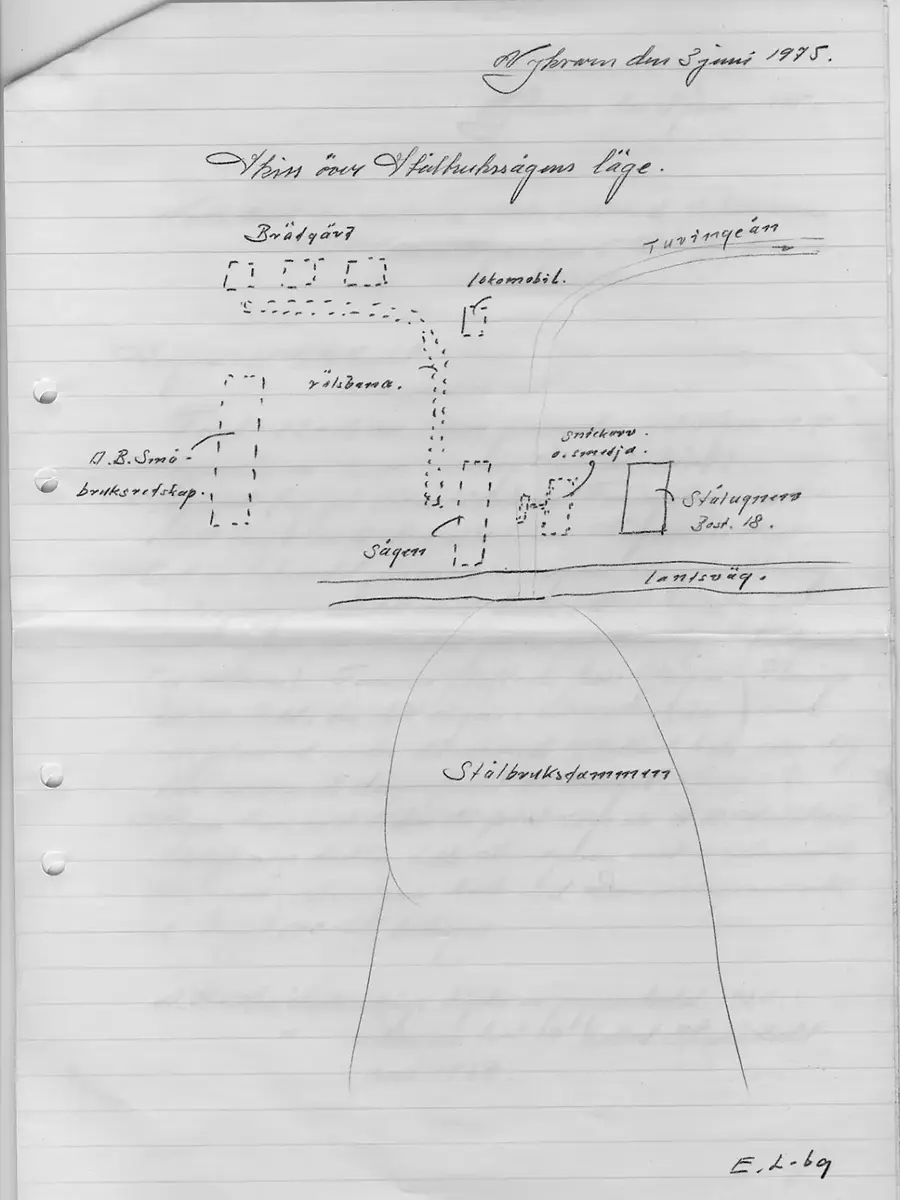 Nykvarn den 3 juni 1975.
Skiss över Stålbrukssågens läge.
Brädgård
Turingeån
lokomobil.
rälsbana.
Snickare.
o. smedja.
A.B. Små-
bruksredskap.
Stålugnen
Bost. 18.
Sågen
landsväg.
Stålbruksdammen
E. L-bg